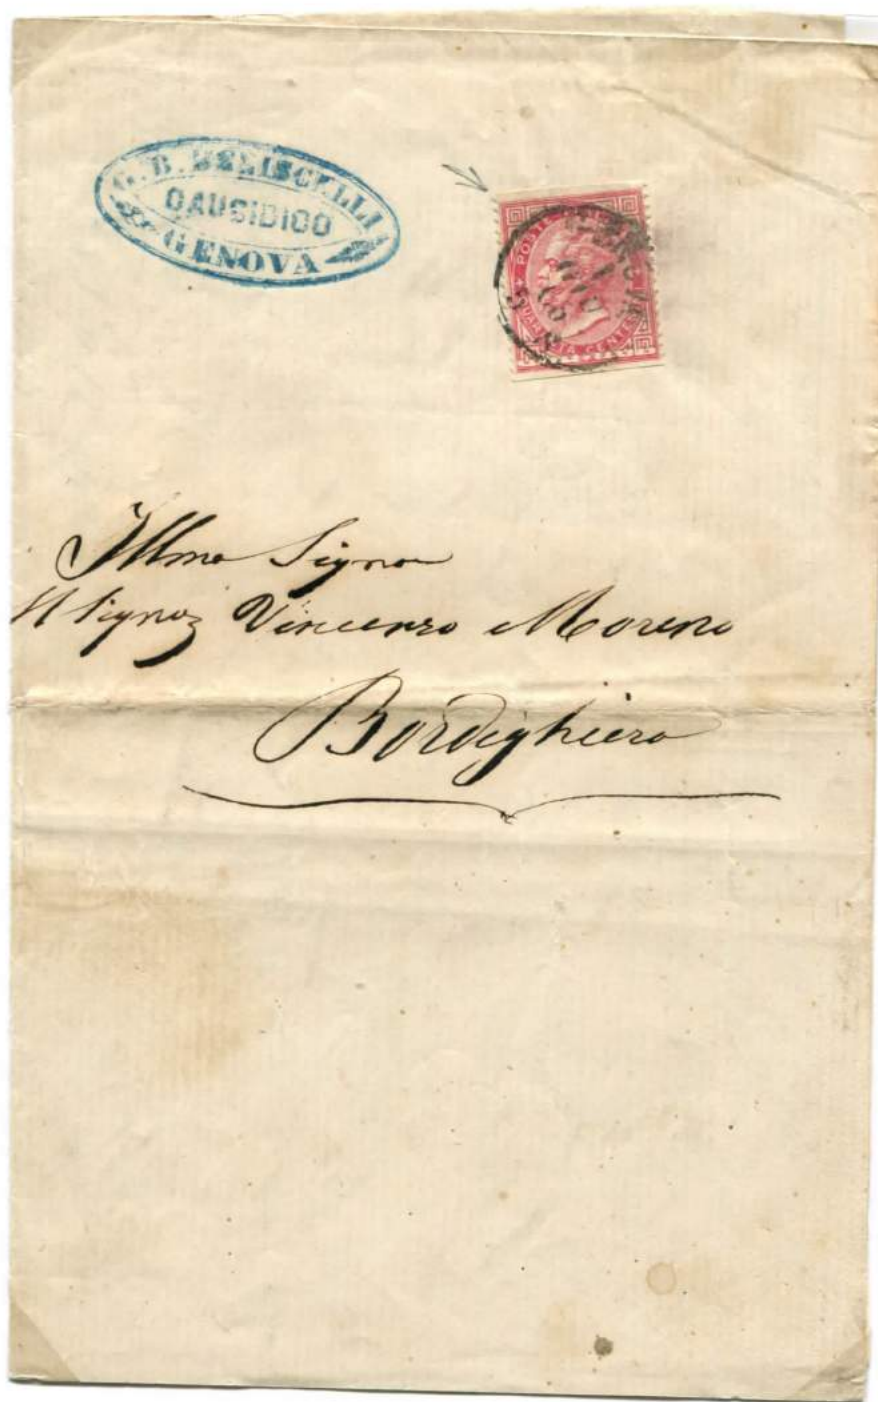 G. B. BENISCELLI
CAUSIDICO
GENOVA
POSTE
QUARANTA CENTES
Illmo Signor
Il Signor Vincenzo Moreno
Bordighiera